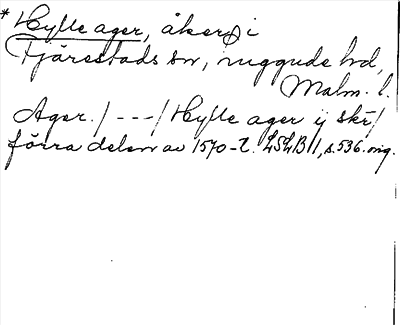 * Hylle ager, åker i
Fjärestads sn, Luggude hd,
Malm. l.
Ager. /---/ Hylle ager ij skr/
förra delen av 1570-t. LSLB 1, s. 536. orig.